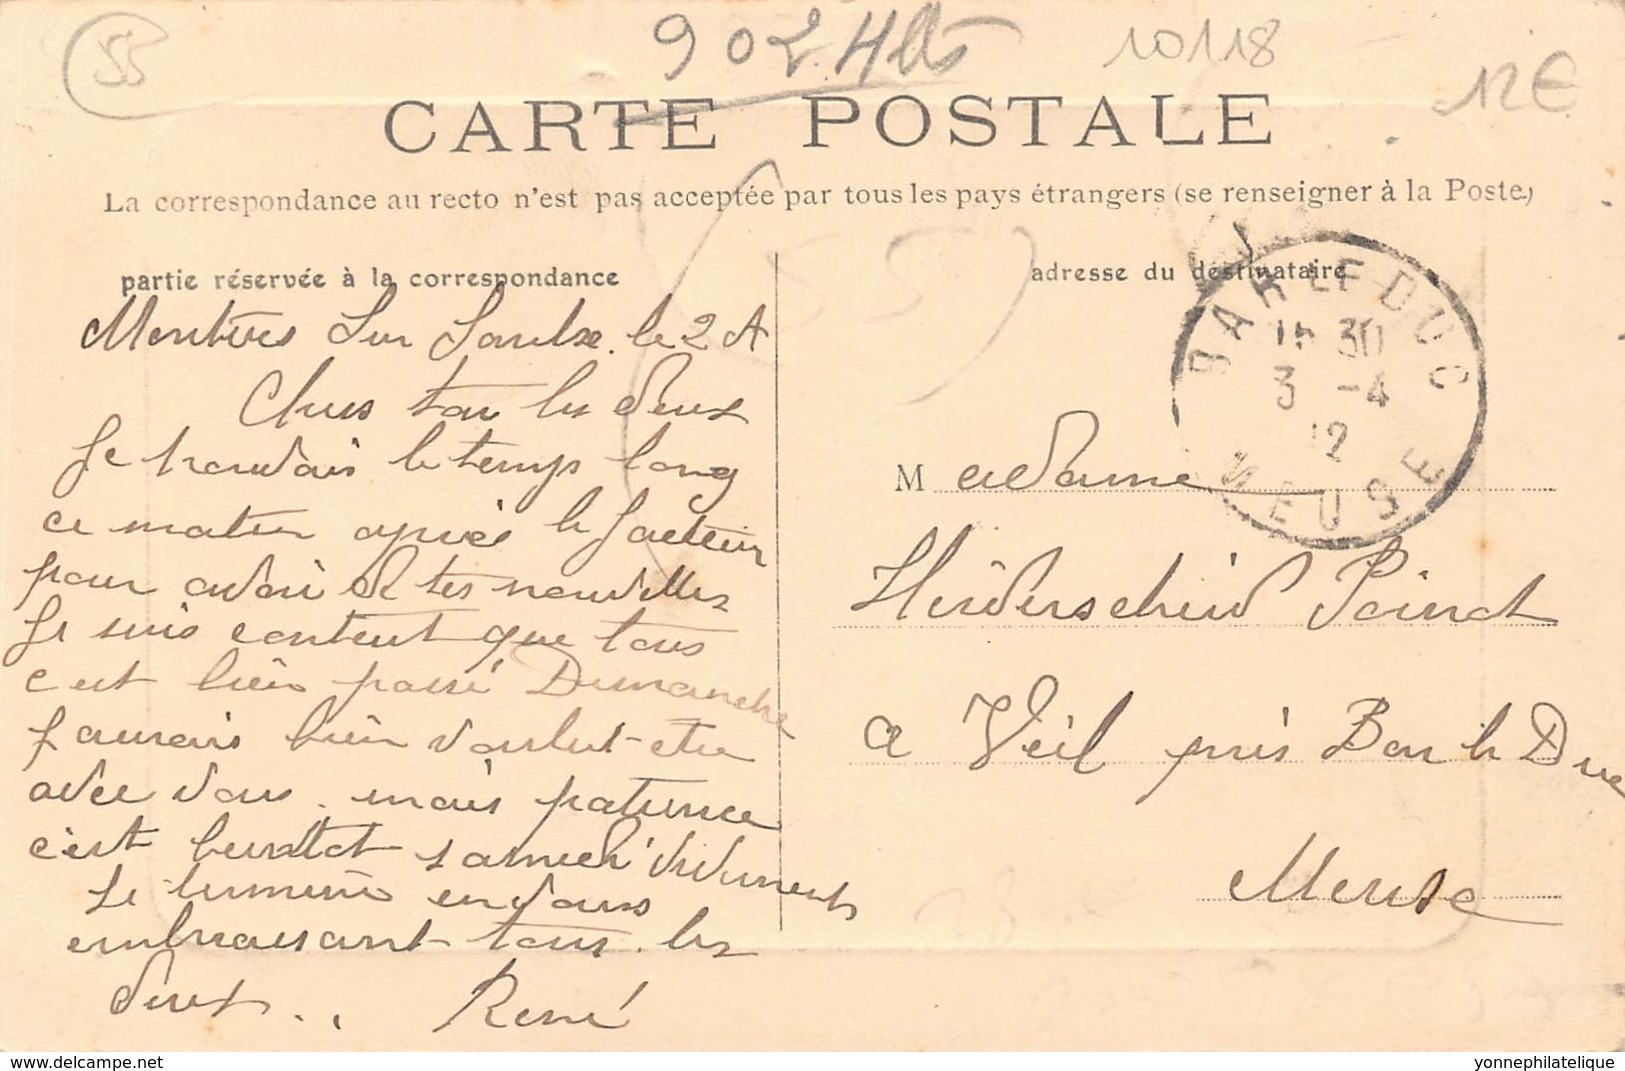 55
902 Hts
10118
12€
CARTE POSTALE
La correspondance au recto n'est pas acceptée par tous les pays étrangers (se renseigner à la Poste)
(55)
partie réservée à la correspondance
adresse du destinataire
BAR-LE-DUC
30
3 -4
12
MEUSE
Sur Saulx. le 2 A
Chers tou les deux
Je trouvais le temps long
ce matin après le facteur
pour avoir de tes nouvelles
Je suis content que tous
c'est bien passé Dimanche
j'aurais bien voulut être
avec vous. mais patience
c'est bientot samedi vivement
Je termine en vous
embrassant tous les
deux..
René
Madame
Heiderscheid Poinct
a Véil près Bar le Duc
Meuse
www.delcampe.net
yonnephilatelique